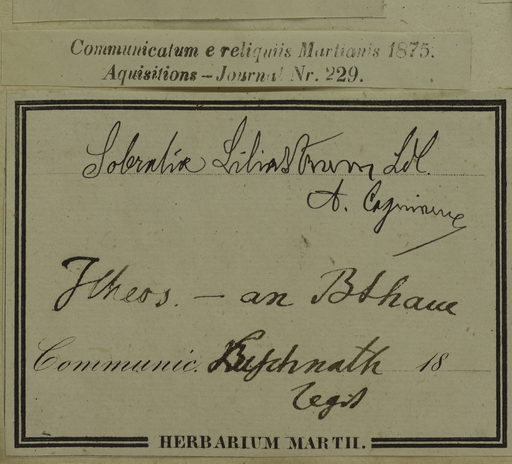 Communicatum e reliquiis Martianis 1875.
Aquisitions – Journal Nr. 229.
Sobralia Liliastrum Ldl.
A. Cogniaux
Ilheos. – an
Communic. Luschnath 18
legit
HERBARIUM MARTII.